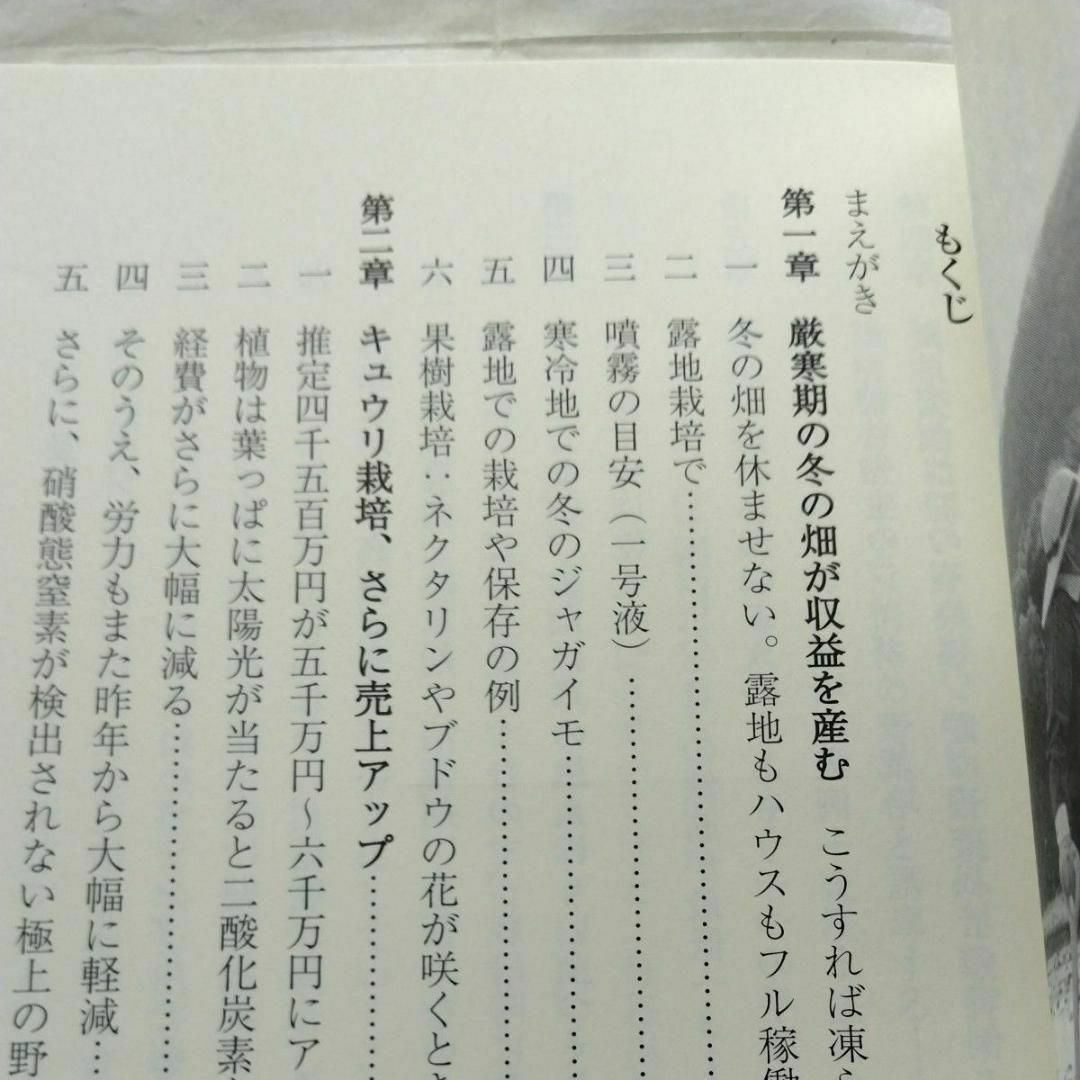 もくじ
まえがき
第一章 厳寒期の冬の畑が収益を産む こうすれば凍
一 冬の畑を休ませない。露地もハウスもフル稼働
二 露地栽培で……………………
三 噴霧の目安（一号液）……………………
四 寒冷地での冬のジャガイモ……………………
五 露地での栽培や保存の例……………………
六 果樹栽培：ネクタリンやブドウの花が咲くと
第二章 キュウリ栽培、さらに売上アップ……………
一 推定四千五百万円が五千万円～六千万円にア
二 植物は葉っぱに太陽光が当たると二酸化炭素
三 経費がさらに大幅に減る……………………
四 そのうえ、労力もまた昨年から大幅に軽減…
五 さらに、硝酸態窒素が検出されない極上の野